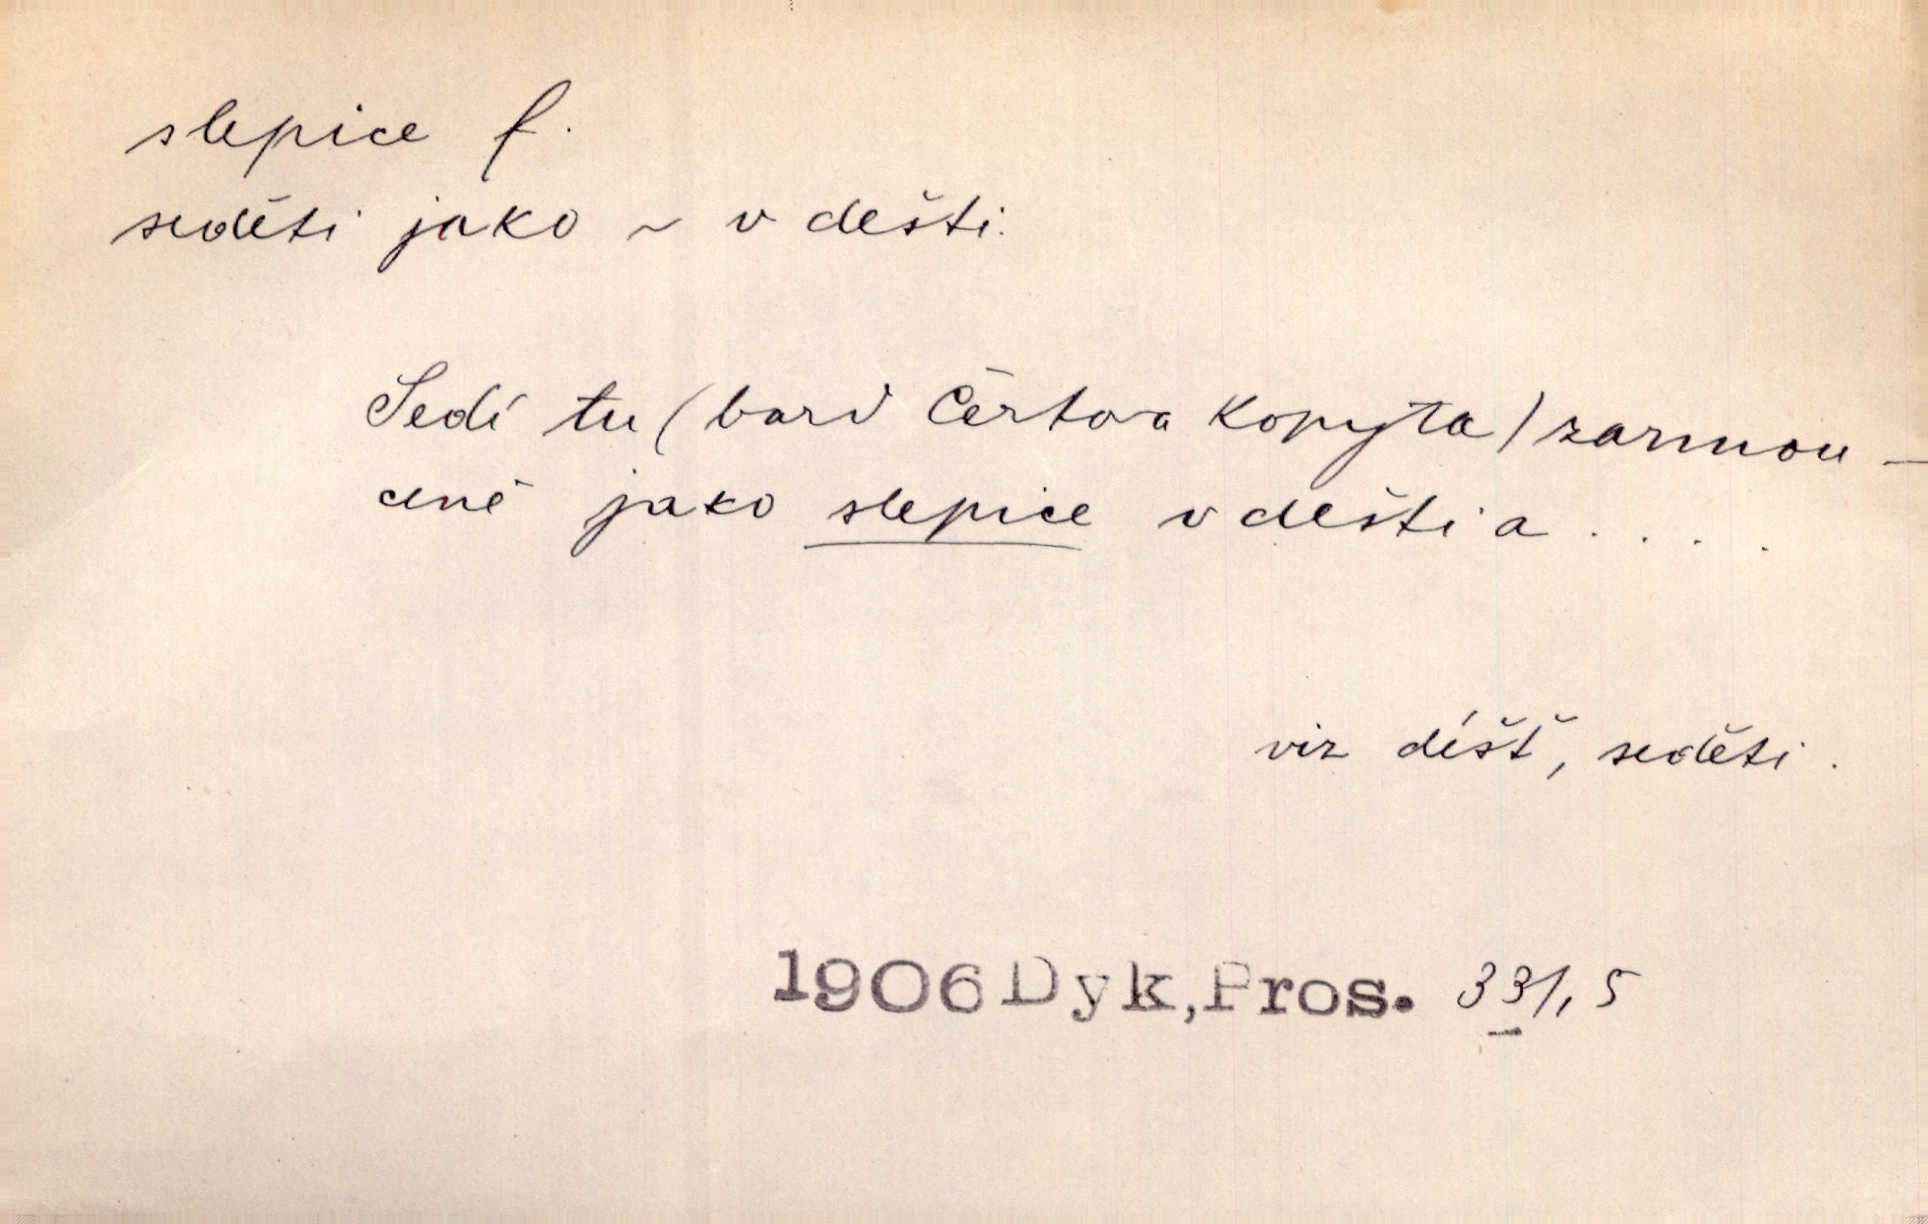 slepice f.
seděti jako ~ v dešti.
Sedí tu (bard Čertova Kopyta) zarmou-
ceně jako slepice v dešti a . . . .
viz déšť, seděti.
1906 Dyk, Pros. 331, 5